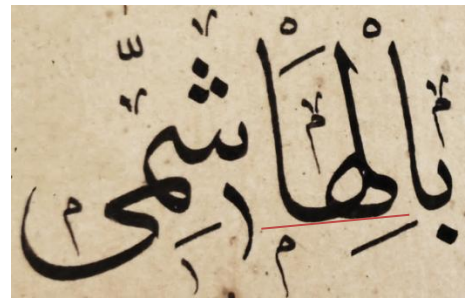 بِالْهَاشِمّى